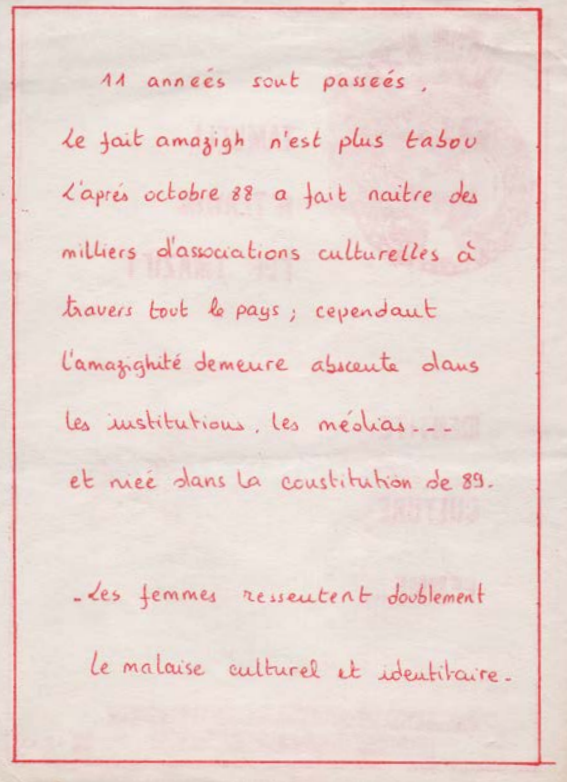 11 anneés sont passeés.
Le fait amazigh n'est plus tabou
L'aprés octobre 88 a fait naitre des
milliers d'associations culturelles à
travers tout le pays ; cependant
l'amazighité demeure abscente dans
les institutions, les médias---
et nieé dans la constitution de 89.
-Les femmes ressentent doublement
le malaise culturel et identitaire.